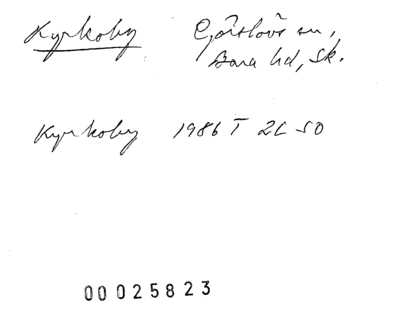 Kyrkoby Görslövs sn,
Bara hd, Sk.
Kyrkoby 1986 T 2C SO
00025823